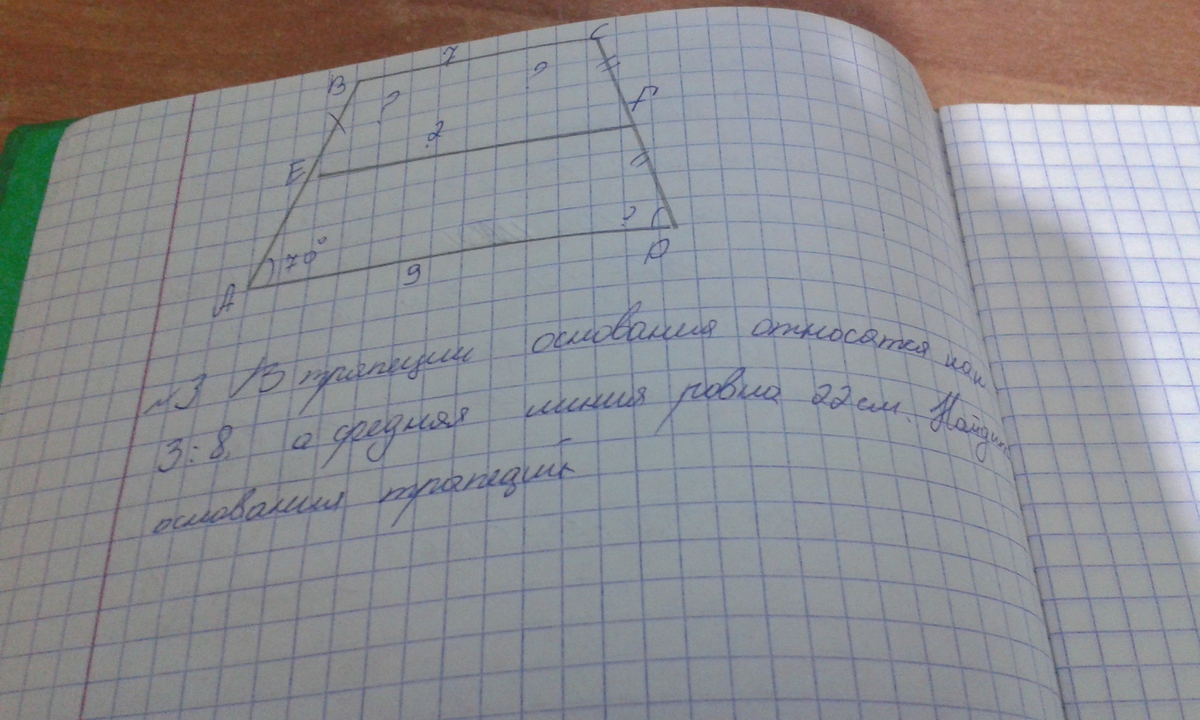 7 C
B ? ?
F
E ?
70° ?
A 9 D
№3 В трапеции основания относятся как
3:8, а средняя линия равна 22см. Найдите
основания трапеции